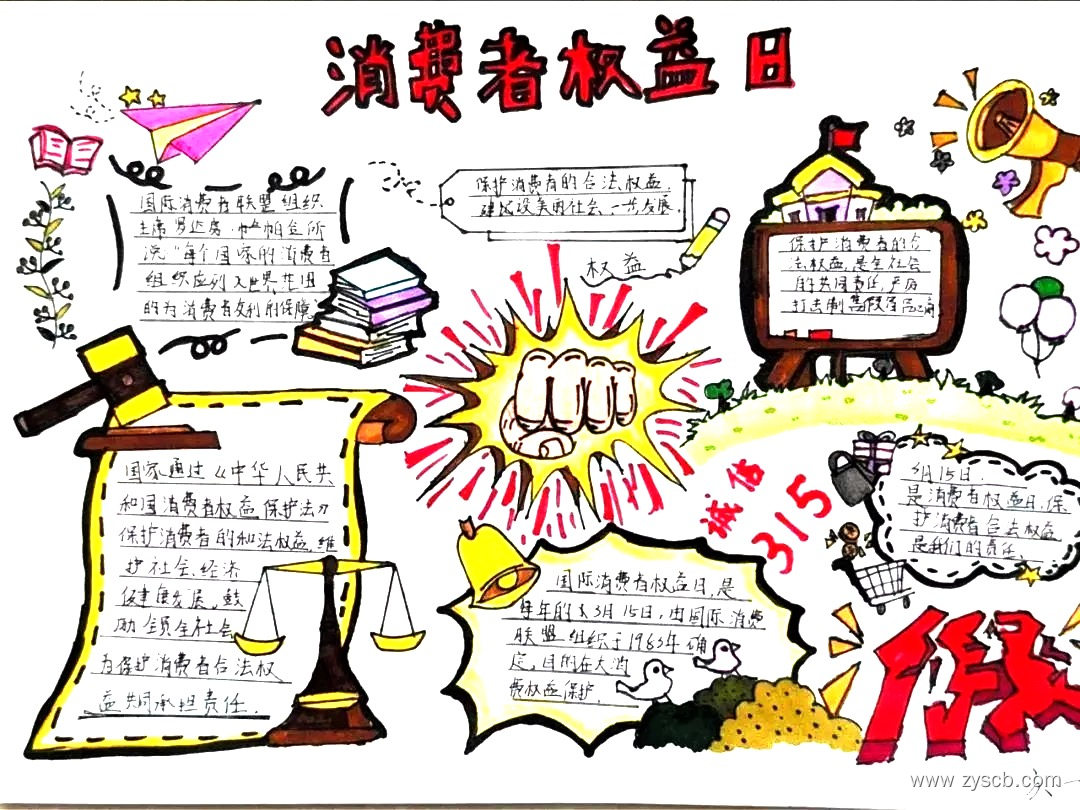 消费者权益日
国际消费者联盟组织
主席
说"每个国家的消费者
组织应列入世界范围
的为消费者
保护消费者的合法权益,
建设美丽社会,一步发展.
权益
保护消费者的合
法权益,是全社会
的共同责任,严厉
打击制
国家通过《中华人民共
和国消费者权益保护法》
保护消费者的和法权益,维
护社会经济
健康发展,鼓
励全员全社会
为保护消费者合法权
益共同承担责任.
诚信
315
3月15日.
是消费者权益日,保
护消费者合法权益
是我们的责任.
国际消费者权益日,是
每年的3月15日,由国际消费
联盟组织于1983年确
定,目的在大消
费权益保护.
假
www.zyscb.com
六一